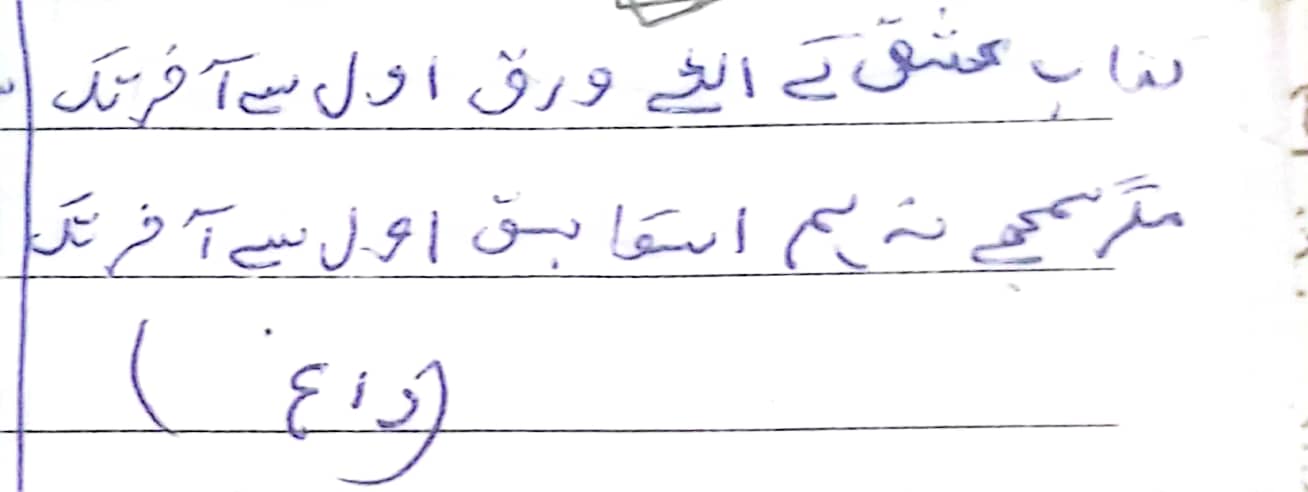 کتاب عشق کے الٹے ورق اول سے آخر تک
مگر سمجھے نہ ہم اسکا سبق اول سے آخر تک
(داغ)